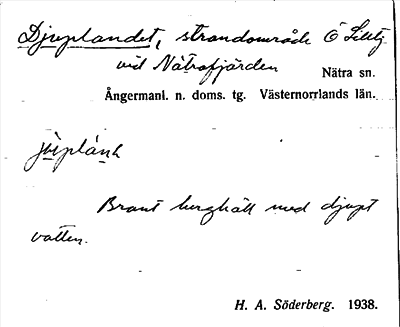 Djuplandet, strandområde Ö
vid Nätrafjärden
Nätra sn.
Ångermanl. n. doms. tg. Västernorrlands län.
Brant berghäll med djupt
vatten.
H. A. Söderberg. 1938.